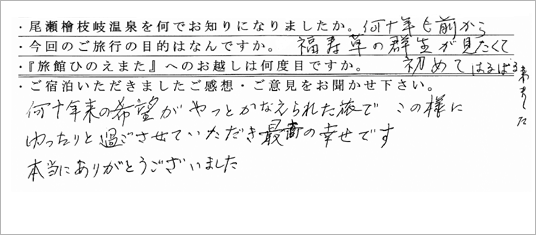 ・尾瀬檜枝岐温泉を何でお知りになりましたか。何十年も前から
・今回のご旅行の目的はなんですか。福寿草の群生が見たくて
・『旅館ひのえまた』へのお越しは何度目ですか。初めてはるばる来ました
・ご宿泊いただきましたご感想・ご意見をお聞かせ下さい。
何十年来の希望がやっとかなえられた旅で この様に
ゆったりと過ごさせていただき最高の幸せです
本当にありがとうございました